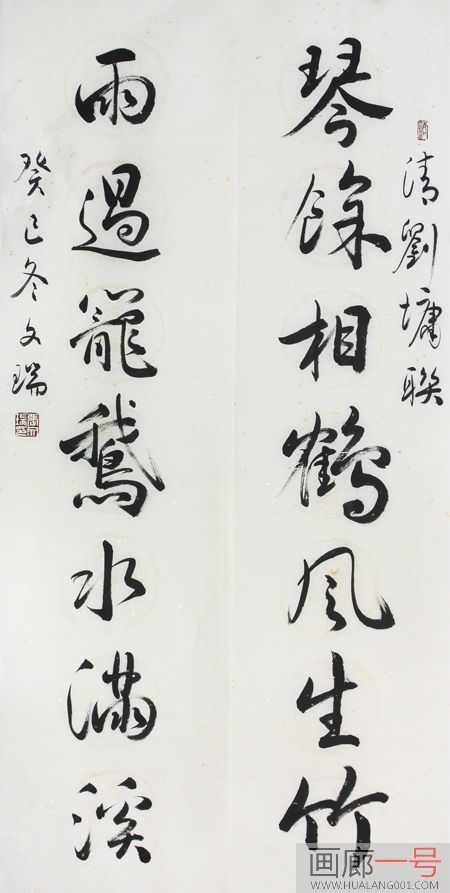 清劉墉聯
琴餘相鶴風生竹
雨過籠鵞水滿溪
癸巳冬文瑞
画廊一号
WWW.HUALANG001.COM